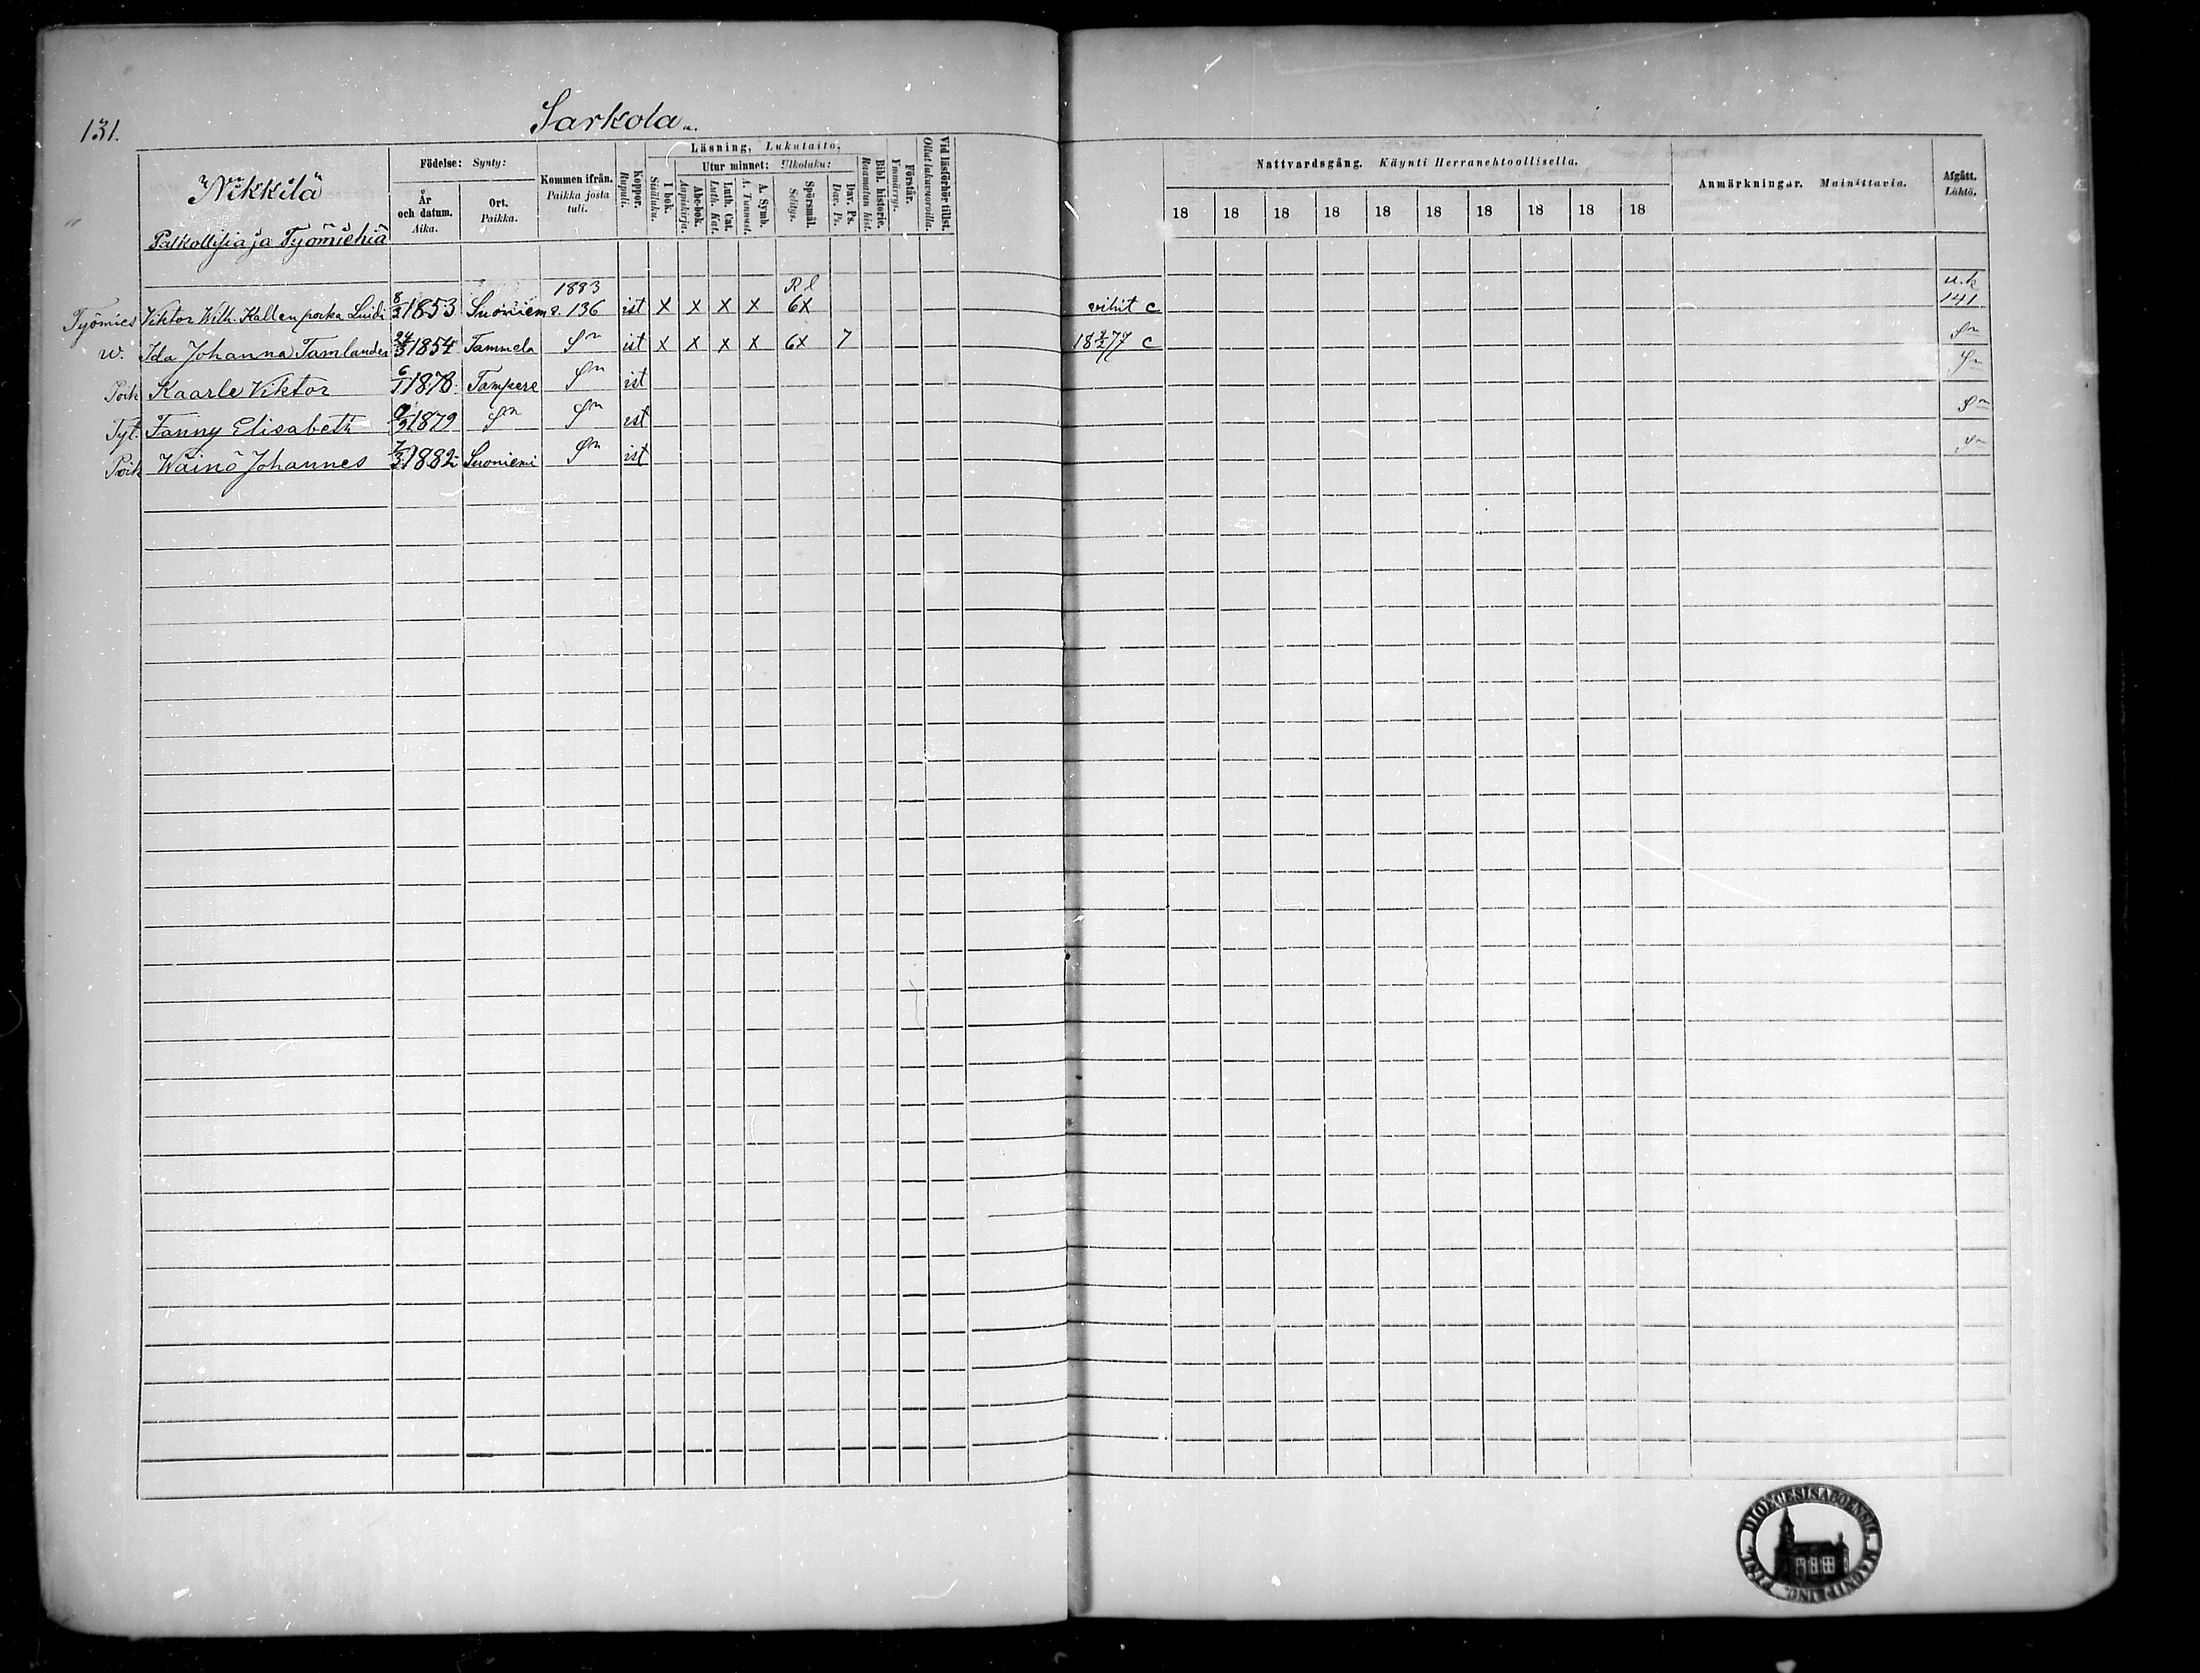 131.
Sarkola
Nikkilä
Palkollisia ja Työmiehiä
Födelse: Synty:
År och datum. Aika.
Ort. Paikka.
Kommen ifrån. Paikka josta tuli.
Koppor. Rupuli.
Läsning, Lukutaito,
I bok. Sisäluku.
Utur minnet: Ulkoluku:
Abc-bok. Aapiskirja.
Luth. Cat. Luth. Kat.
A. Symb. A. Tunnust.
Spörsmål. Selitys.
Dav. Ps. Dav. Ps.
Bibl. historie. Raamatun hist.
Förstår. Ymmärrys.
Vid läsförhör tillst. Ollut lukuvuoroilla.
Nattvardsgång. Käynti Herranehtoollisella.
18 18 18 18 18 18 18 18 18 18
Anmärkningar. Mainittavia.
Afgått. Lähtö.
1883 R l u.k
Työmies Viktor Wilh. Kallen poika 8/3 1853 Suoniemi s. 136 ist x x x x 6x vihit c 141
w. Ida Johanna Tamlander 1854 Tammela Sn ist x x x x 6x 7 18 2/2 77 c Sn
Poik Kaarle Viktor 6/1 1878. Tampere Sn ist Sn
Tyt. Fanny Elisabeth 1879 Sn Sn ist Sn
Poik Wäinö Johannes 7/3 1882 Suoniemi Sn ist Sn